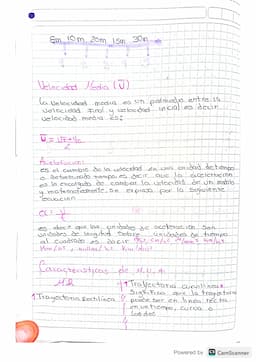 5m 10m 20m 15m 30m
Velocidad Media (V̄)
La velocidad media es un promedio entre la
velocidad final y velocidad inicial es decir
velocidad media es:
V̄ = Vf+Vo
2
Aceleracion:
es el cambio de la velocidad en una unidad de tiempo
o determinado tiempo es decir que la aceleración
es la encargada de cambiar la velocidad de un movil
y matematicamente se expresa por la siguiente
ecuacion
es decir que las unidades de aceleracion son
unidades de longitud sobre unidades de tiempo
al cuadrado es decir
Caracteristicas de M.U.A
Trayectoria rectilinea
Trayectoria curvilinea
significa que la trayectoria
puede ser en linea recta
en un tiempo, curva o
los dos
Powered by CS CamScanner